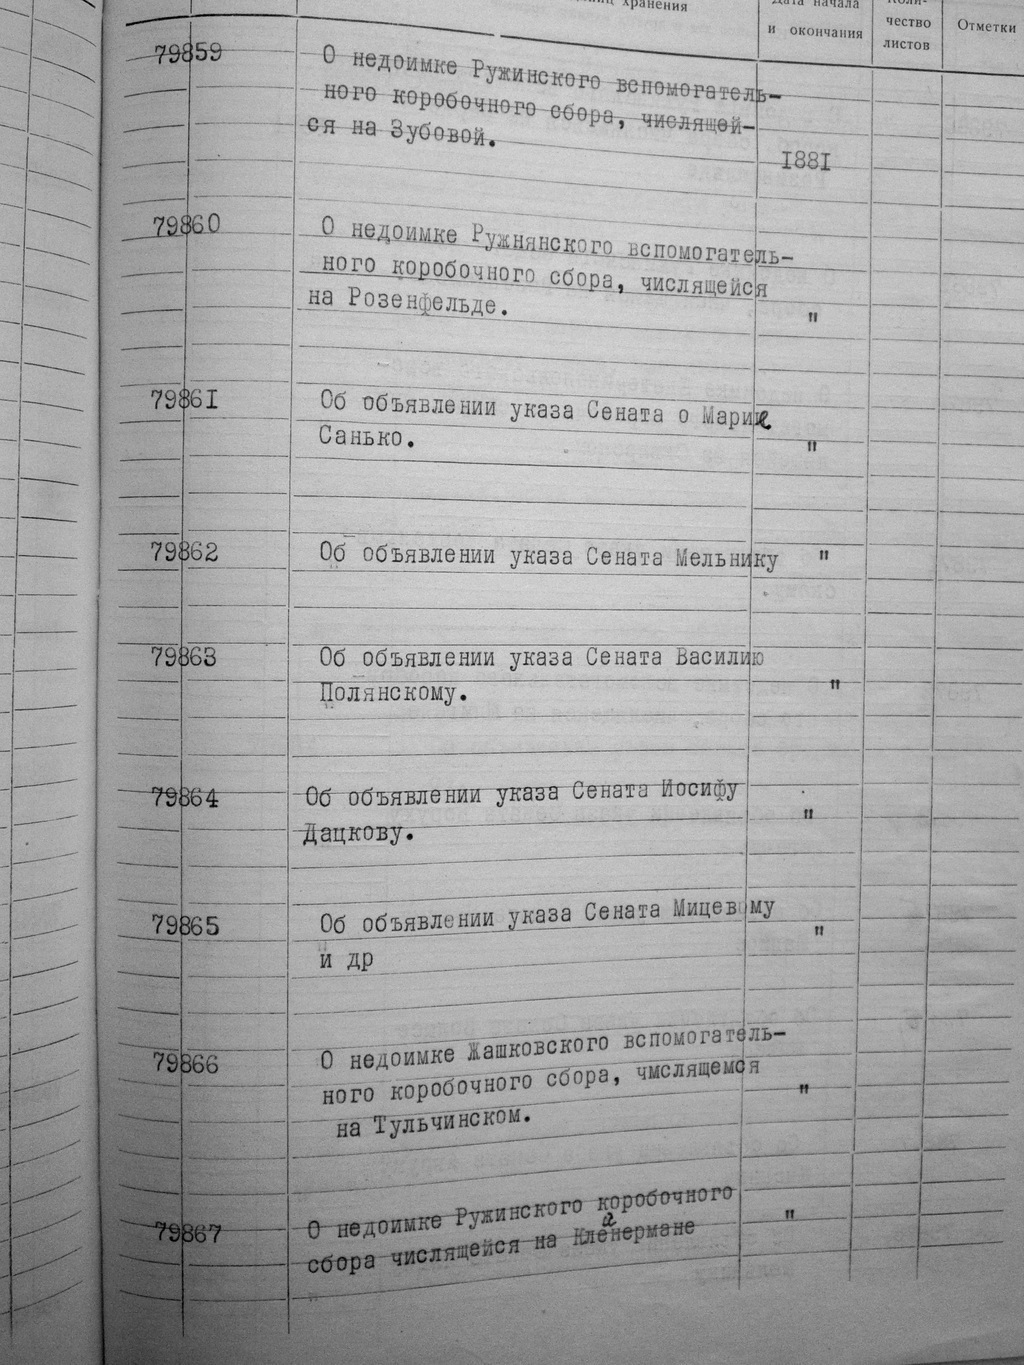 хранения
Дата начала
и окончания
Коли-
чество
листов
Отметки
79859
О недоимке Ружинского вспомогатель-
ного коробочного сбора, числящей-
ся на Зубовой.
I88I
79860
О недоимке Ружнянского вспомогатель-
ного коробочного сбора, числящейся
на Розенфельде.
"
7986I
Об объявлении указа Сената о Марие
Санько.
"
79862
Об объявлении указа Сената Мельнику "
79863
Об объявлении указа Сената Василию
Полянскому.
"
79864
Об объявлении указа Сената Иосифу
Дацкову.
"
79865
Об объявлении указа Сената Мицевому
и др
"
79866
О недоимке Жашковского вспомогатель-
ного коробочного сбора, чмслящемся
на Тульчинском.
"
79867
О недоимке Ружинского коробочного
сбора числящейся на Кленермане
"